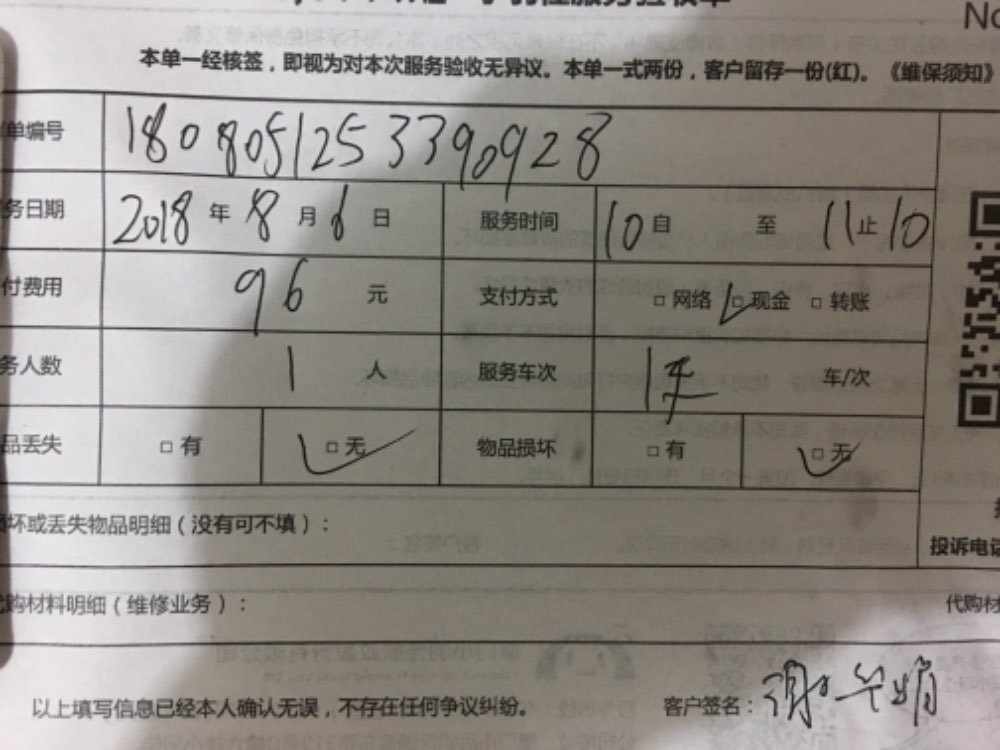 服务验收单
No
本单一经核签，即视为对本次服务验收无异议。本单一式两份，客户留存一份(红)。《维保须知》
单编号 1808051253390928
务日期 2018 年 8 月 6 日 服务时间 10 自 至 11 止 10
付费用 96 元 支付方式 □ 网络 □ 现金 □ 转账
务人数 1 人 服务车次 1 车/次
品丢失 □ 有 □ 无 物品损坏 □ 有 □ 无
损坏或丢失物品明细（没有可不填）：
投诉电话
代购材料明细（维修业务）： 代购材
以上填写信息已经本人确认无误，不存在任何争议纠纷。 客户签名：谢华娟